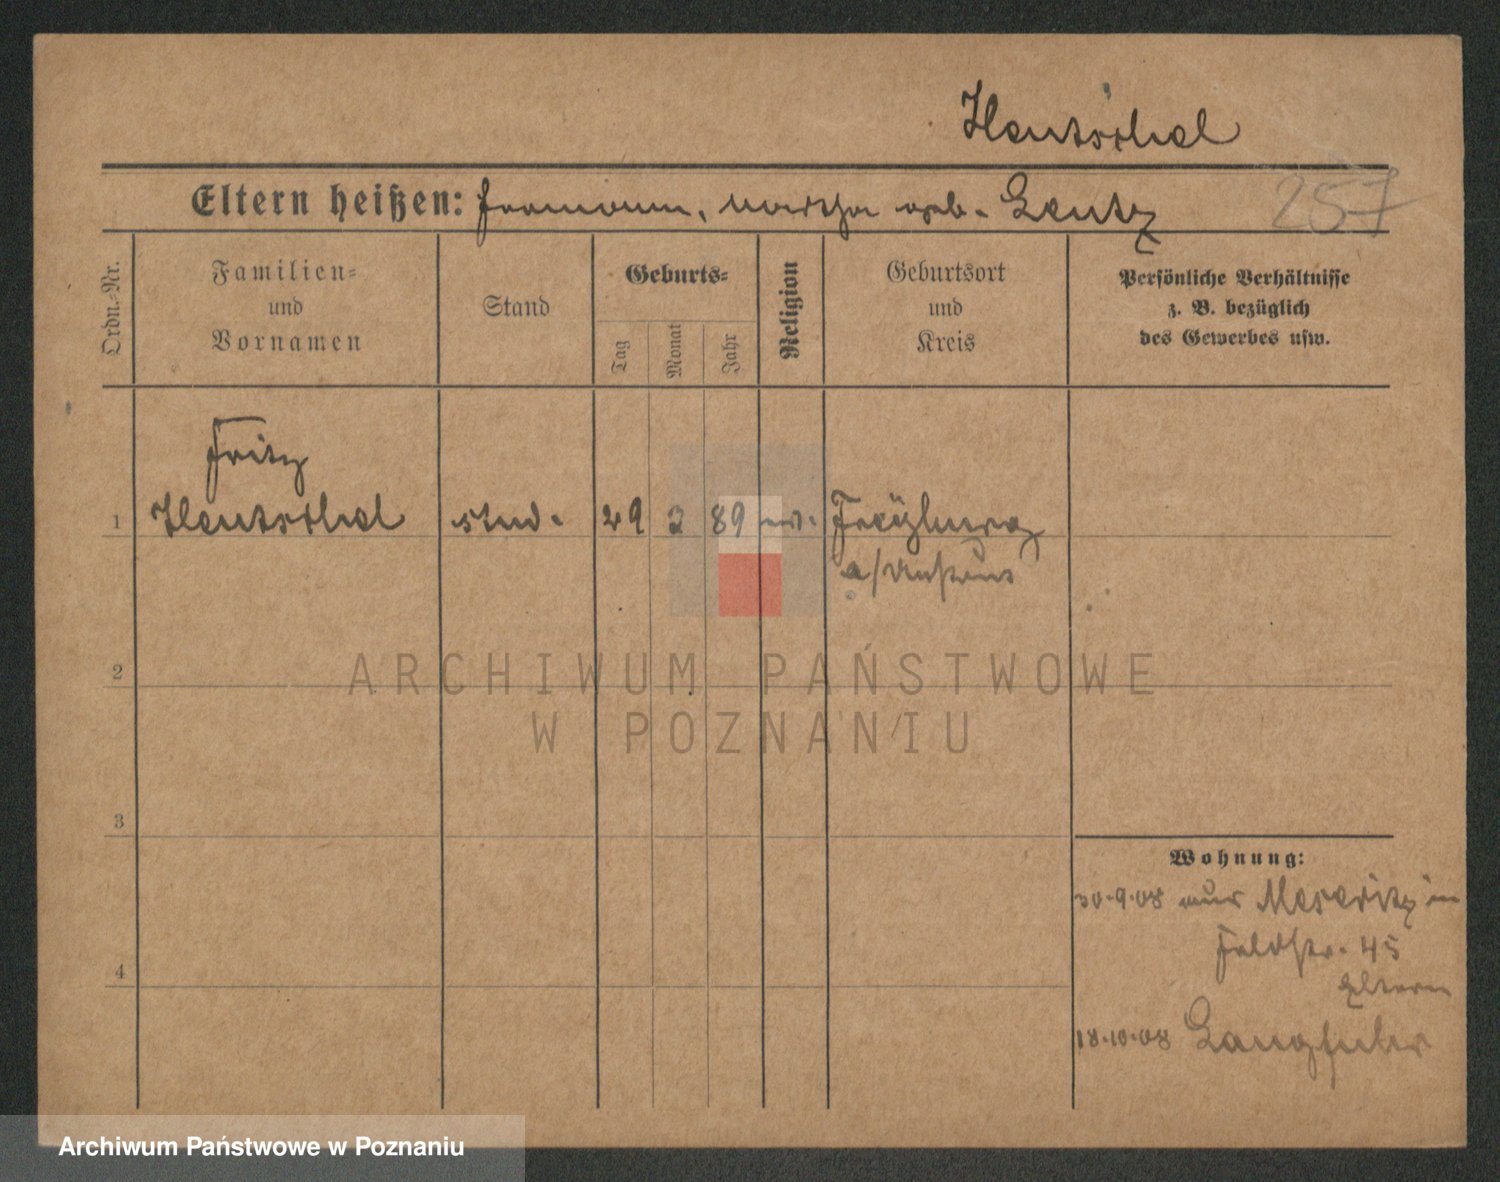 Hentschel
Eltern heißen: Hermann, Martha geb. Lentz
257
Ordn.-Nr.
Familien-
und
Vornamen
Stand
Geburts-
Tag
Monat
Jahr
Religion
Geburtsort
und
Kreis
Persönliche Verhältnisse
z. B. bezüglich
des Gewerbes usw.
Fritz
1 Hentschel stud. 29 2 89 ev. Freyburg
a/Unstrut
2
ARCHIWUM PAŃSTWOWE
W POZNANIU
3
Wohnung:
30.9.08 aus Meseritz in
Feldstr. 45
Eltern
4
18.10.08 Langfuhr
Archiwum Państwowe w Poznaniu